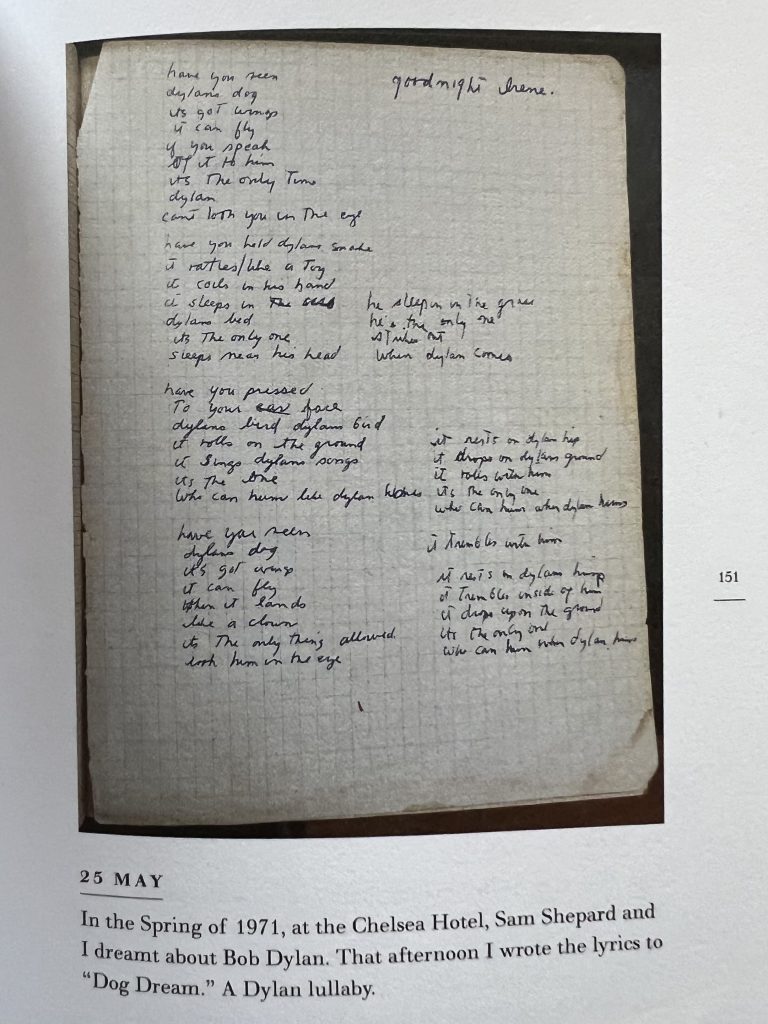 goodnight Irene.
have you seen
dylans dog
its got wings
it can fly
if you speak
of it to him
its The only Time
dylan
cant look you in The eye
have you held dylans snake
it rattles like a Toy
it coils in his hand
it sleeps in The
dylans bed
its The only one
sleeps near his head
he sleeps in The grass
he's the only one
strikes out
when dylan comes
have you pressed
To your face
dylans bird dylans bird
it rolls on the ground
it sings dylans songs
its The one
who can hum like dylan
it rests on dylans hip
it drops on dylans ground
it rolls with him
its the only one
who can hum when dylan hums
it trembles with him
have you seen
dylans dog
it's got wings
it can fly
when it lands
like a clown
its The only thing allowed
look him in the eye
it rests in dylans
it trembles inside of him
it drops upon the ground
its the only one
who can hum when dylan hums
151
25 MAY
In the Spring of 1971, at the Chelsea Hotel, Sam Shepard and
I dreamt about Bob Dylan. That afternoon I wrote the lyrics to
“Dog Dream.” A Dylan lullaby.